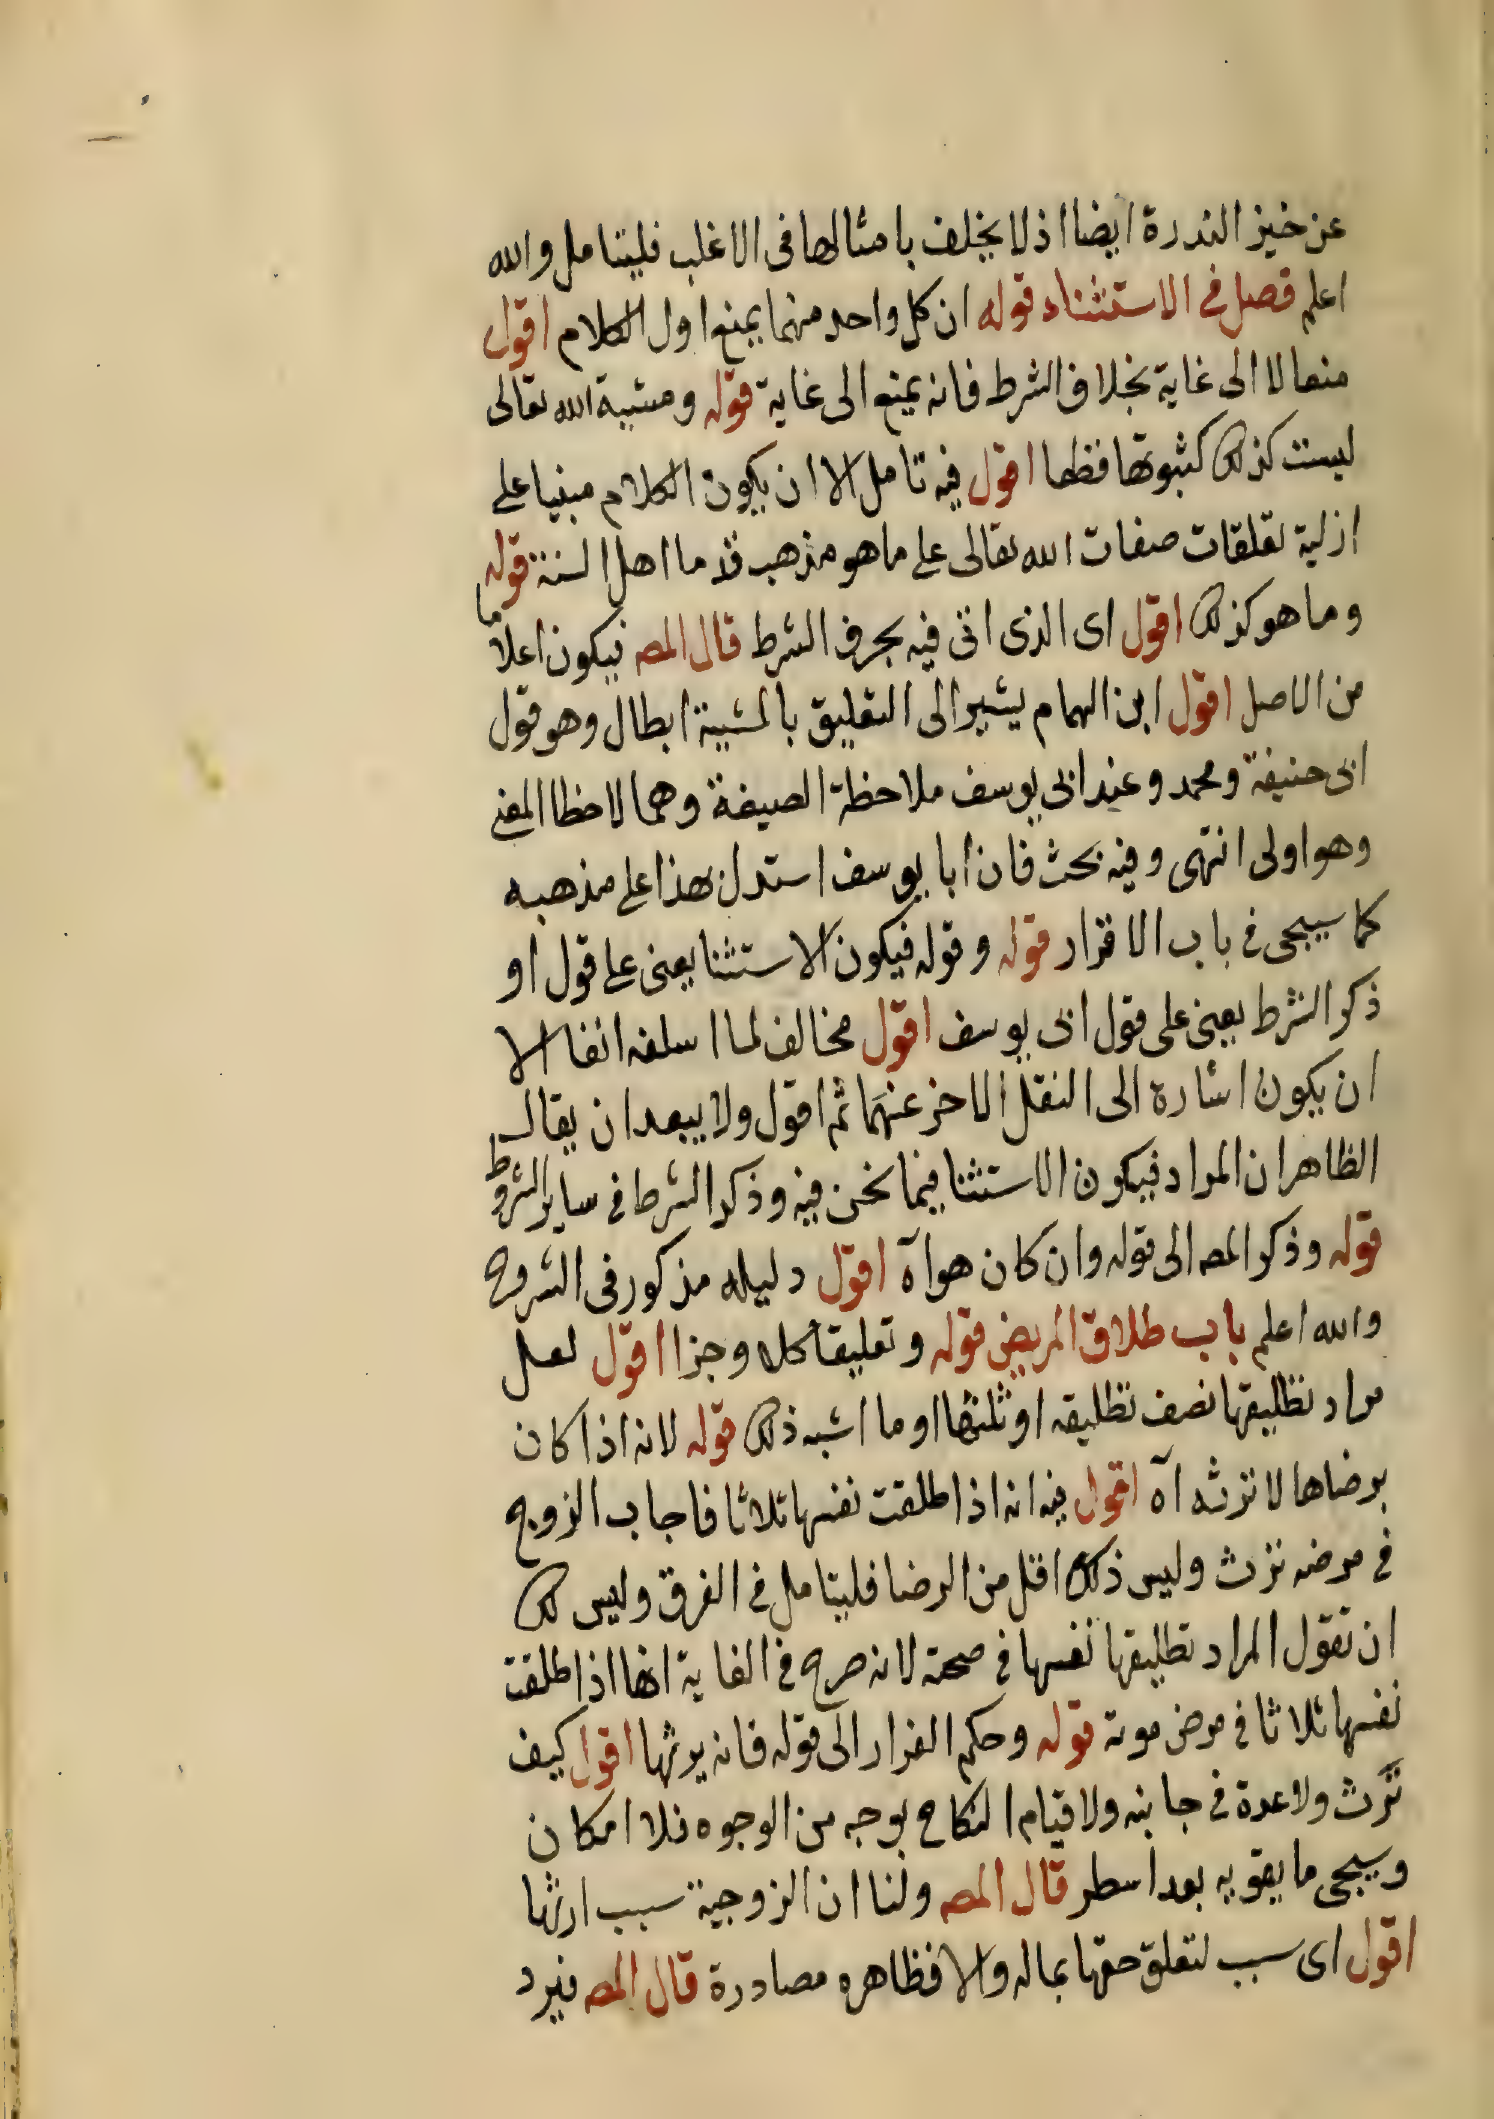 عن خيز الندرة ايضا اذ لا يحلف بامثالها فى الاغلب فليتامل والله
اعلم فصل فى الاستثناء قوله ان كل واحد منهما يمنع اول الكلام اقول
منعا لا الى غاية بخلاف الشرط فانه يمنع الى غاية قوله ومشيية الله تعالى
ليست كذلك كثبوتها قطعا اقول فيه تامل الا ان يكون الكلام مبنيا على
ازلية تعلقات صفات الله تعالى على ما هو مذهب قدما اهل السنة قوله
وما هو كذلك اقول اى الذى اتى فيه بحرف الشرط قال المصـ فيكون اعلاما
من الاصل اقول ابن الهمام يشير الى التعليق بالمشية ابطال وهو قول
ابى حنيفة ومحمد وعند ابى يوسف ملاحظة الصيغة وهما لاحظا المعنى
وهو اولى انتهى وفيه بحث فان ابا يوسف استدل بهذا على مذهبه
كما سيجى فى باب الاقرار قوله وقوله فيكون الاستثنا يعنى على قول او
ذكر الشرط يعنى على قول ابى يوسف اقول مخالف لما اسلفه انفا الا
ان يكون اشارة الى النقل الاخر عنهما ثم اقول ولا يبعد ان يقال
الظاهر ان المراد فيكون الاستثنا فيما نحن فيه وذكر الشرط فى ساير الشروط
قوله وذكر المصـ الى قوله وان كان هو اه اقول دليله مذكور فى الشروح
والله اعلم باب طلاق المريض قوله وتعليقا كله وجزا اقول لعل
مراد تطليقها نصف تطليقه او ثلثها او ما اشبه ذلك قوله لانه اذا كان
برضاها لا ترثه اه اقول فيه انه اذا طلقت نفسها ثلاثا فاجاب الزوج
فى مرضه ترث وليس ذلك اقل من الرضا فليتامل فى الفرق وليس لك
ان تقول المراد تطليقها نفسها فى صحته لانه صرح فى الغاية انها اذا طلقت
نفسها ثلاثا فى مرض موته قوله وحكم الفرار الى قوله فانه يرثها اقول كيف
ترث ولا عدة فى جانبه ولا قيام النكاح بوجه من الوجوه فلا امكان
وسيجى ما يقويه بعد اسطر قال المصـ ولنا ان الزوجية سبب ارثها
اقول اى سبب لتعلق حقها بماله والا فظاهره مصادرة قال المصـ فيرد